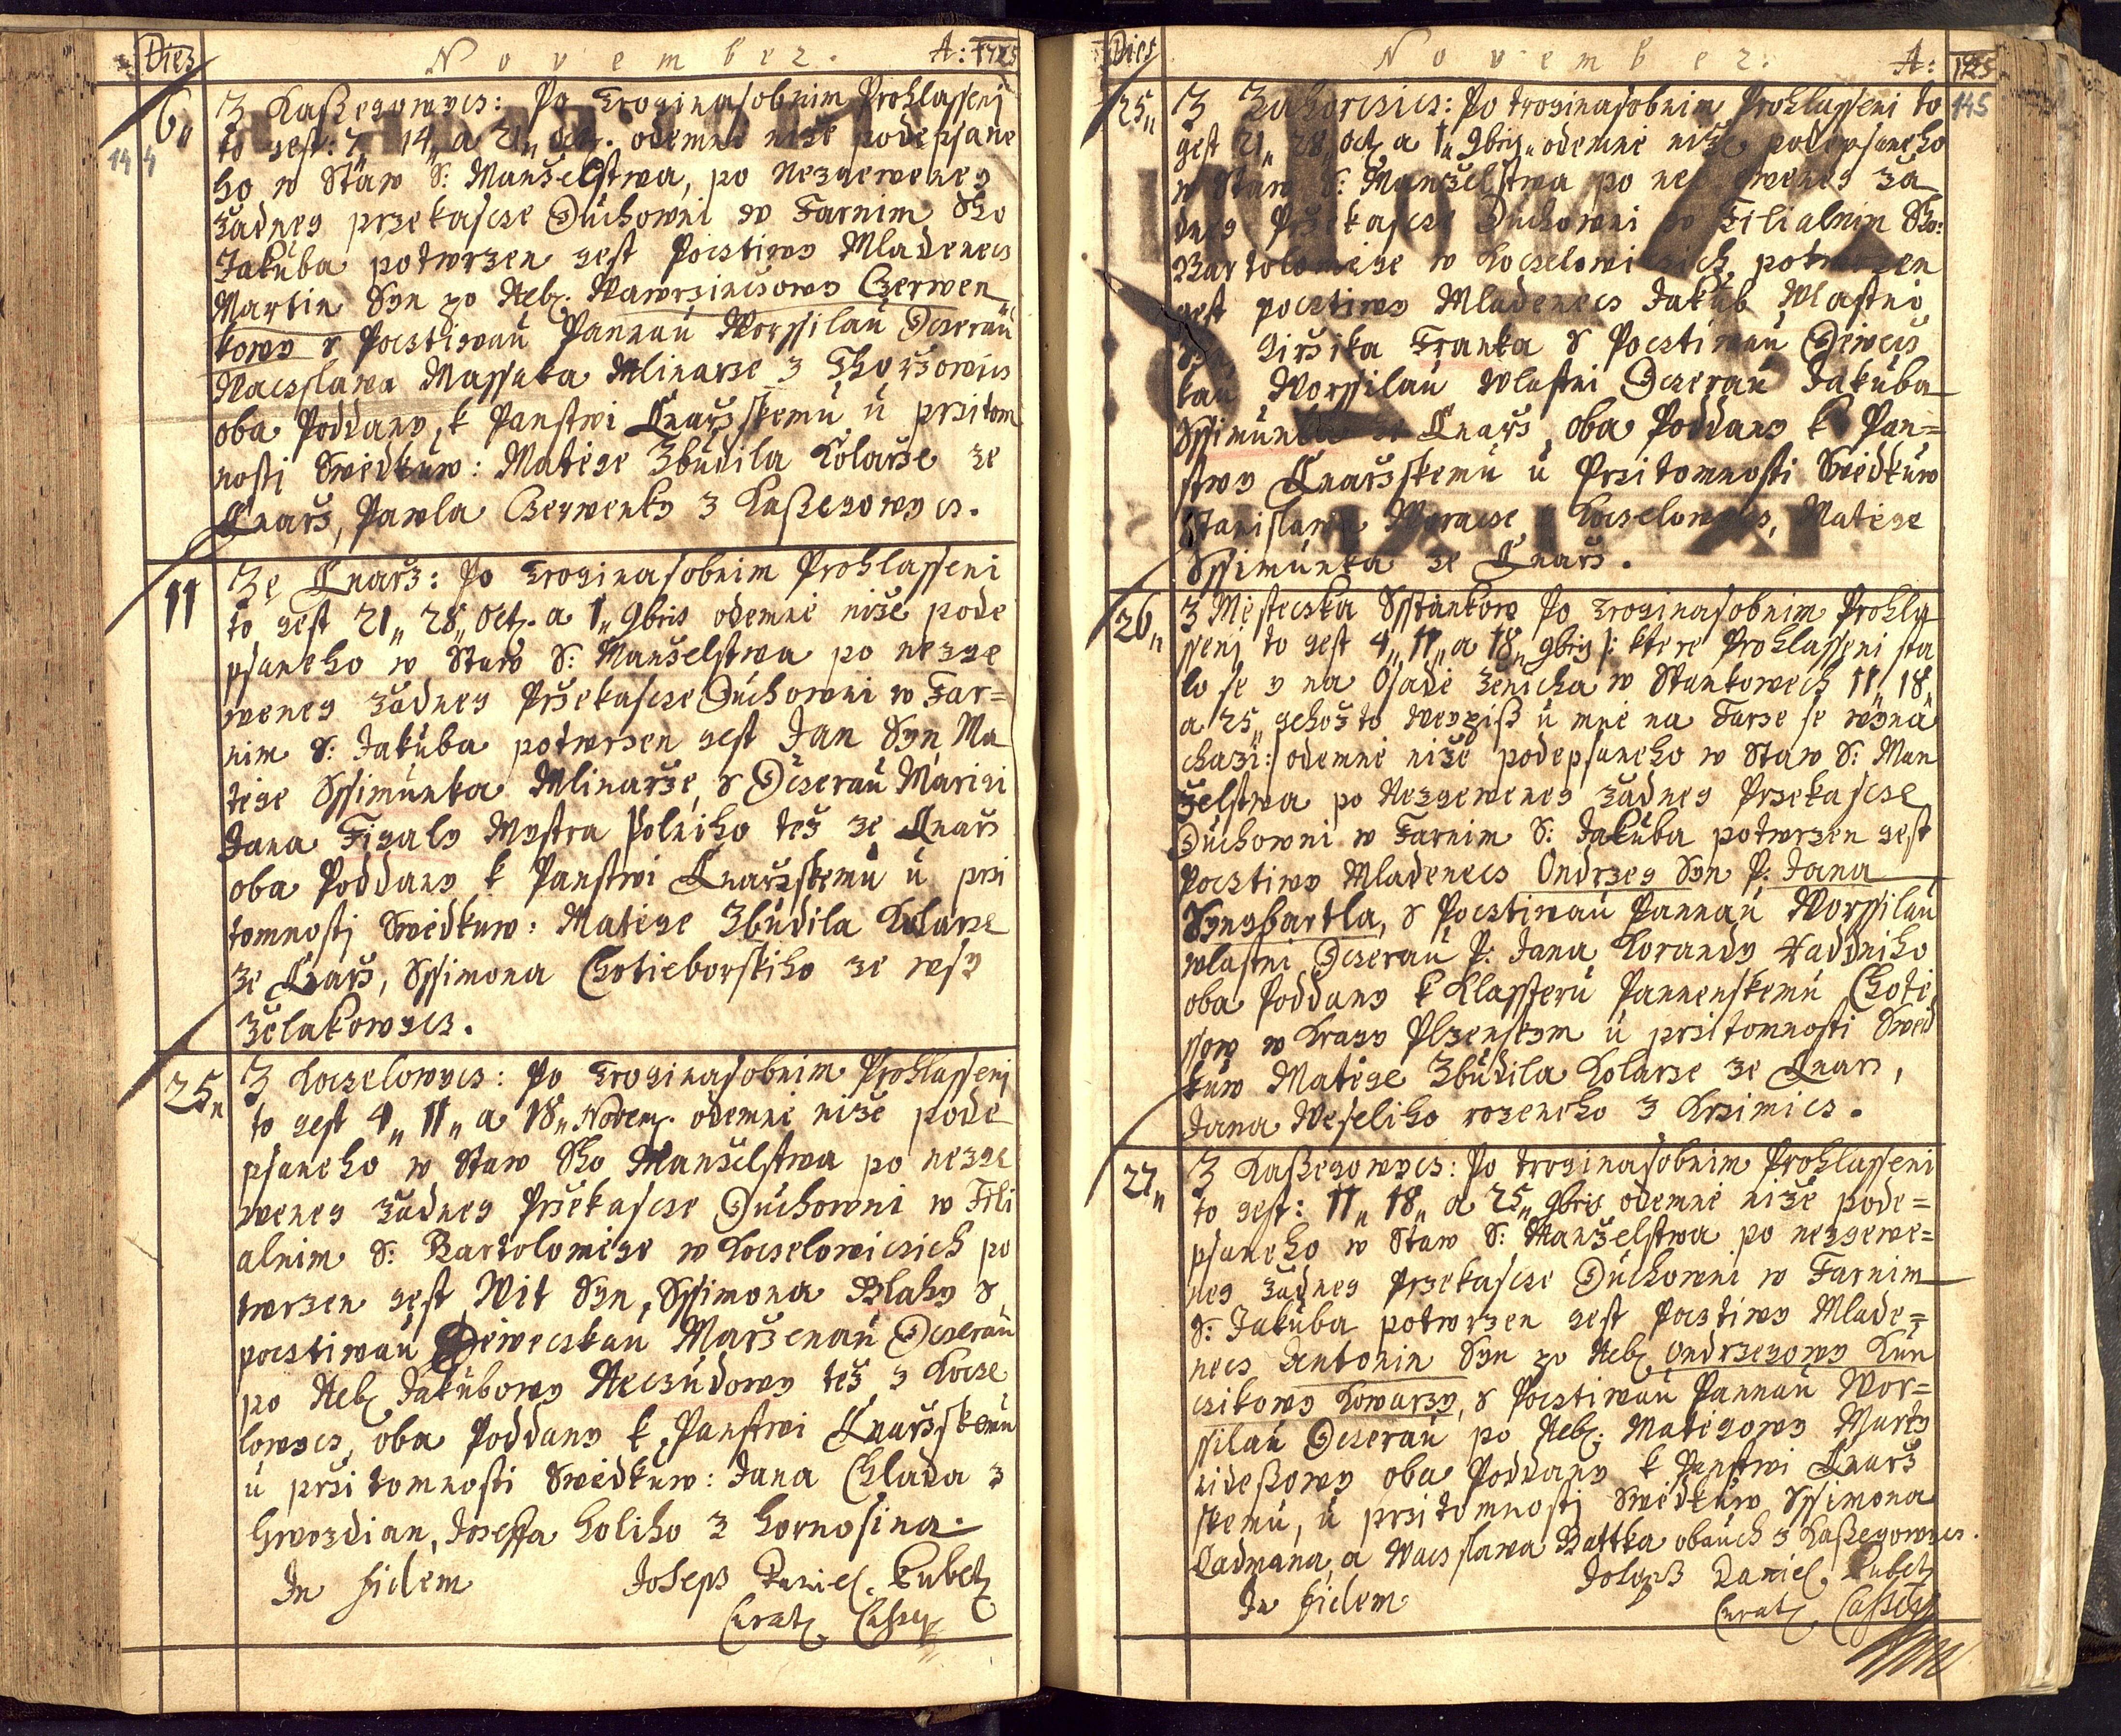 Dies November. A: 1725
144
6.
Z Kaßegowycz: Po troginasobnim Prohlasseni
to gest: 7" 14" a 21" Octr. odemne niže podepsane
ho w Staw S: Manželstwa, po nezgeweneg
žadneg przekascze Duchowni w Farnim Sho
Jakuba potwrzen gest Pocztiwy Mladenecz
Martin Syn po Neb. Wawrzinczowy Czerwen
kowy s Pocztiwau Pannau Worssilau Dczerau
Waczslawa Massaka Mlinarze z
oba Poddany k Panstwi Lnaržskemu u przitom
nosti Swědkuw: Matěge Zbudila Kolarže ze
Lnarž, Pawla Czerwenky z Kaßegowycz.
11
Ze Lnarž: Po trogina sobnim Prohlasseni
to gest 21" 28" Oct. a 1" 9bris odemně niže pode
psaneho w Staw S: Manželstwa po nezge
weneg žadneg Pržekascze Duchowni w Far=
nim S: Jakuba potwrzen gest Jan Syn Ma
těge Ssimunka Mlinarže, s Dczerau Marigi
Jana Figaly Mystra Polniho též ze Lnarž
oba Poddany k Panstwi Lnaržskemu u przi
tomnosti Swědkuw: Matěge Zbudila Kolarze
ze Lnarž, Ssimona Chotieborskiho ze wsy
Zělakowycz.
25"
Z Koczelowycz: Po troginasobnim Prohlasseni
to gest 4" 11" a 18" Novem. odemně niže pode
psaneho w Staw Sho Manželstwa po nezge
weneg žadneg Pržekascze Duchowni w Fili
alnim S: Bartoloměge w Koczelowiczich po
twrzen gest Wit Syn Ssimona Blahy s
pocztiwau Děweczkau Marženau Dczerau
po Neb. Jakubowy Neczudowy též z Kocze
lowycz, oba Poddany k Panstwi Lnaržskemu
u pržitomnosti Swědkuw: Jana Chlada z
Hwozdian, Joseffa Holiho z Hornosina.
In fidem Joseph Daniel Kubetz
Curat. Cassey.
Dies November: A: 1725
145
25"
Z Zahorczicz: Po troginasobnim Prohlasseni to
gest 21" 28" Oct. a 1" 9bris odemně niže podepsaneho
w Staw S: Manželstwa po nez geweneg ža
dneg Pržekascze Duchowni w Filialnim Sho:
Bartoloměge w Koczelowiczich potwrzen
gest pocztiwy Mladenecz Jakub Wlastni
Syn Giržika Franka s Pocztiwau Děwecž
kau Worssilau wlastni Dczerau Jakuba
Ssimunka ze Lnarž, oba Poddany k Pan=
stwy Lnaržskemu u Przitomnosti Swědkuw
Stanislawa Koczelowycz, Matěge
Ssimunka ze Lnarž.
26"
Z Městeczka Sstankow Po troginasobnim Prohla
sseni to gest 4" 11" a 18" 9bris /: ktere Prohlasseni sta
lo se y na Osadě ženicha w Stankowech 11" 18"
a 25" gehožto Weypiß u mně na Farze se wyna
chazi:/ odemně niže podepsaneho w Staw S: Man
želstwa po Nezgeweneg žadneg Przekascze
Duchowni w Farnim S: Jakuba potwrzen gest
Pocztiwy Mladenecz Ondrzeg Syn P: Jana
Syngbartla, s Pocztiwau Pannau Worssilau
wlastni Dczerau P: Jana Korandy Raddniho
oba Poddany k Klassteru Pannenskemu Chotě
ssow w Kragy Plzenskym u przitomnosti Swěd
kuw Matěge Zbudila Kolarze ze Lnarz,
Jana Weseliho rozeneho z Krzimicz.
27"
Z Kaßegowycz: Po troginasobnim Prohlasseni
to gest: 11" 18" a 25" 9bris odemně niže pode=
psaneho w Staw S: Manželstwa po nezgewe=
neg žadneg Przekascze Duchowni w Farnim
S: Jakuba potwrzen gest Pocztiwy Mlade=
necz Antonin Syn po Neb. Ondrzegowy Kun
czikowy Kowarzy, s Pocztiwau Pannau Wor=
ssilau Dczerau po Neb. Matěgowy Marty
nideßowy oba Poddany k Panstwi Lnarž
skemu, u przitomnosti Swědkuw Ssimona
Cadmana, a Waczslawa Battka obauch z Kaßegowycz.
In fidem Joseph Daniel Kubetz
Curat. Cassey.